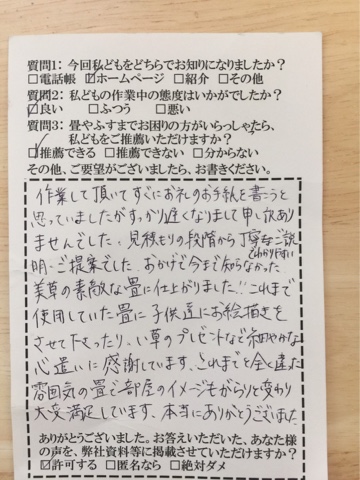 質問1: 今回私どもをどちらでお知りになりましたか?
□電話帳 ☑ホームページ □紹介 □その他
質問2: 私どもの作業中の態度はいかがでしたか?
☑良い □ふつう □悪い
質問3: 畳やふすまでお困りの方がいらっしゃったら、
私どもをご推薦いただけますか?
☑推薦できる □推薦できない □分からない
その他、ご要望がございましたら、お書きください。
作業して頂いてすぐにお礼のお手紙を書こうと
思っていましたがすっかり遅くなりまして申し訳あり
ませんでした。見積もりの段階から丁寧なご説
でわかりやすい
明・ご提案でした。おかげで今まで知らなかった
美草の素敵な畳に仕上がりました!!これまで
使用していた畳に子供達にお絵描きを
させて下さったり、い草のプレゼントなど細やかな
心遣いに感謝しています。これまでと全く違った
雰囲気の畳で部屋のイメージもがらりと変わり
大変満足しています。本当にありがとうございました
ありがとうございました。お答えいただいた、あなた様
の声を、弊社資料等に掲載させていただけますか?
☑許可する □匿名なら □絶対ダメ